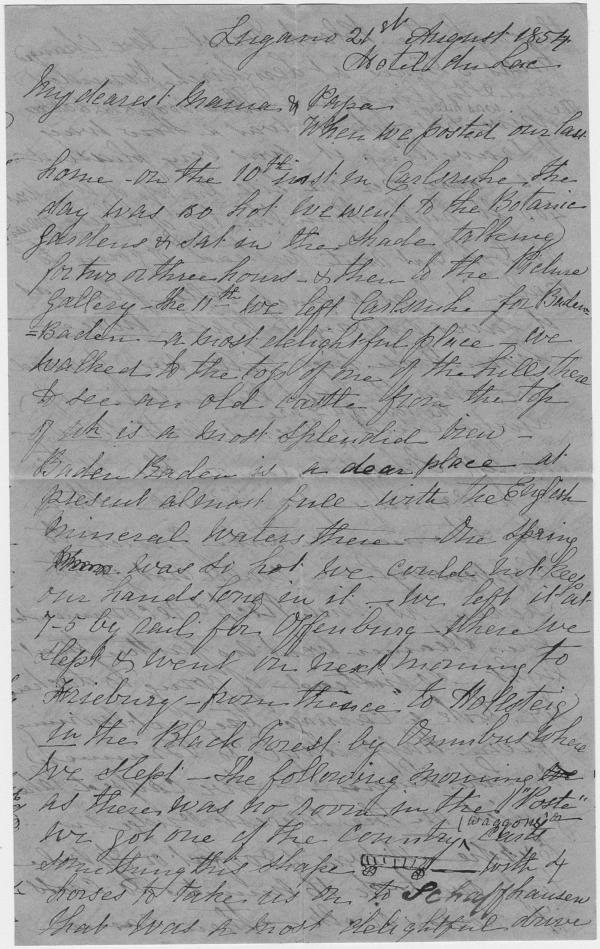 Lugano 21st August 1854
Hotel du Lac
My dearest Mama & Papa
When we posted our last
home - on the 10th inst in Carlsruhe the
day was so hot we went to the Botanic
Gardens & sat in the shade talking
for two or three hours - & then to the Picture
Gallery - the 11th we left Carlsruhe for Baden
=Baden - a most delightful place - we
walked to the top of one of the hills there
to see an old castle from the top
of wh is a most splendid view -
Baden Baden is a dear place at
present almost full - with the English
mineral waters there - One spring
was so hot we could not keep
our hands long in it - We left it at
7-5 by rail for Offenburg - where we
slept & went on next morning to
Frieburg - from thence to Hollsteig
in the Black Forest by Omnibus where
we slept - The following morning we
as there was no room in the "Poste"
we got one of the country (waggons or carts
something this shape - with 4
horses to take us on to Schaffhausen
that was a most delightful drive